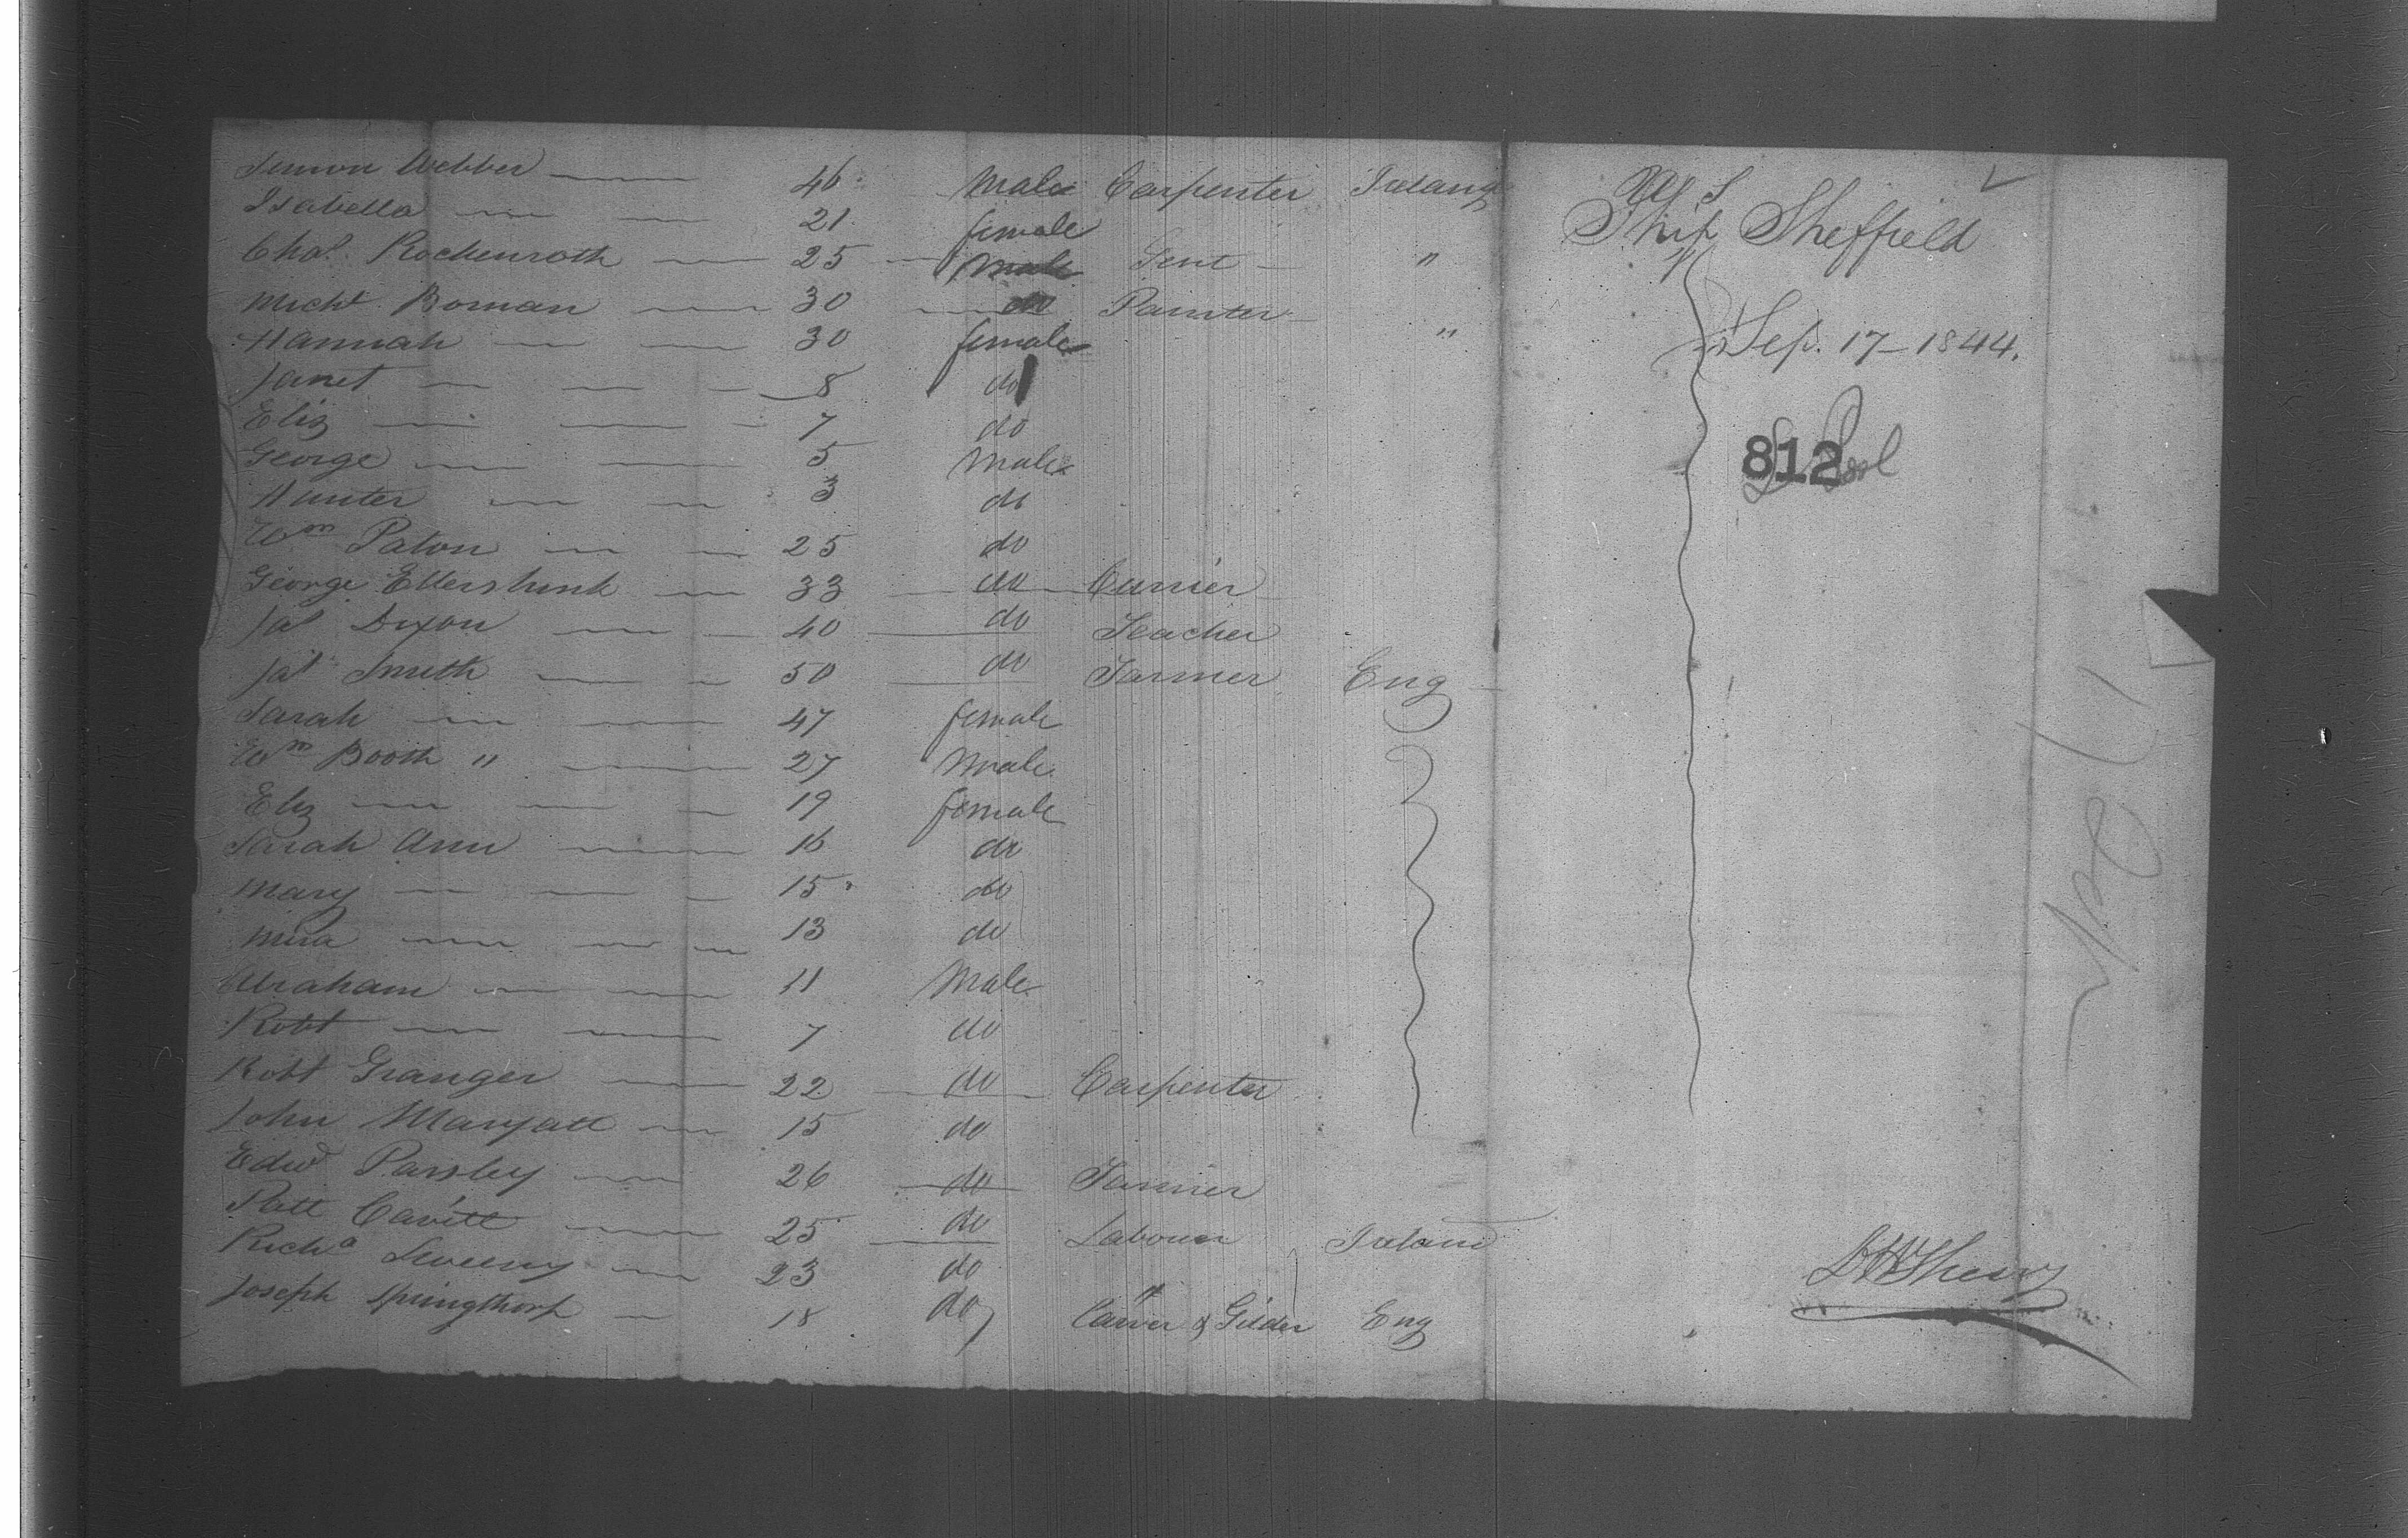 Simon Webber 46 Male Carpenter Ireland
Isabella 21 female
Chas. Rockenroth 25 Male Gent "
Michl. Boman 30 do Painter
Hannah 30 female "
Janet 8 do
Eliz 7 do
George 5 Male
Hunter 3 do
Wm Paton 25 do
George 33 do Currier
Jas Dixon 40 do Teacher
Jas Smith 50 do Farmer Eng
Sarah 47 female
Wm Booth " 27 Male
Eliz 19 female
Sarah Ann 16 do
Mary 15 do
13 do
Abraham 11 Male
Robt 7 do
Robt Granger 22 do Carpenter
John Maryatt 15 do
Edwd Parsley 26 do
Patt Cavitt 25 do Labourer Ireland
Richd Sweeny 23 do "
Joseph Springthorp 18 do Carver & Gilder Eng
Ship Sheffield
Sep. 17 - 1844.
812
L Pool